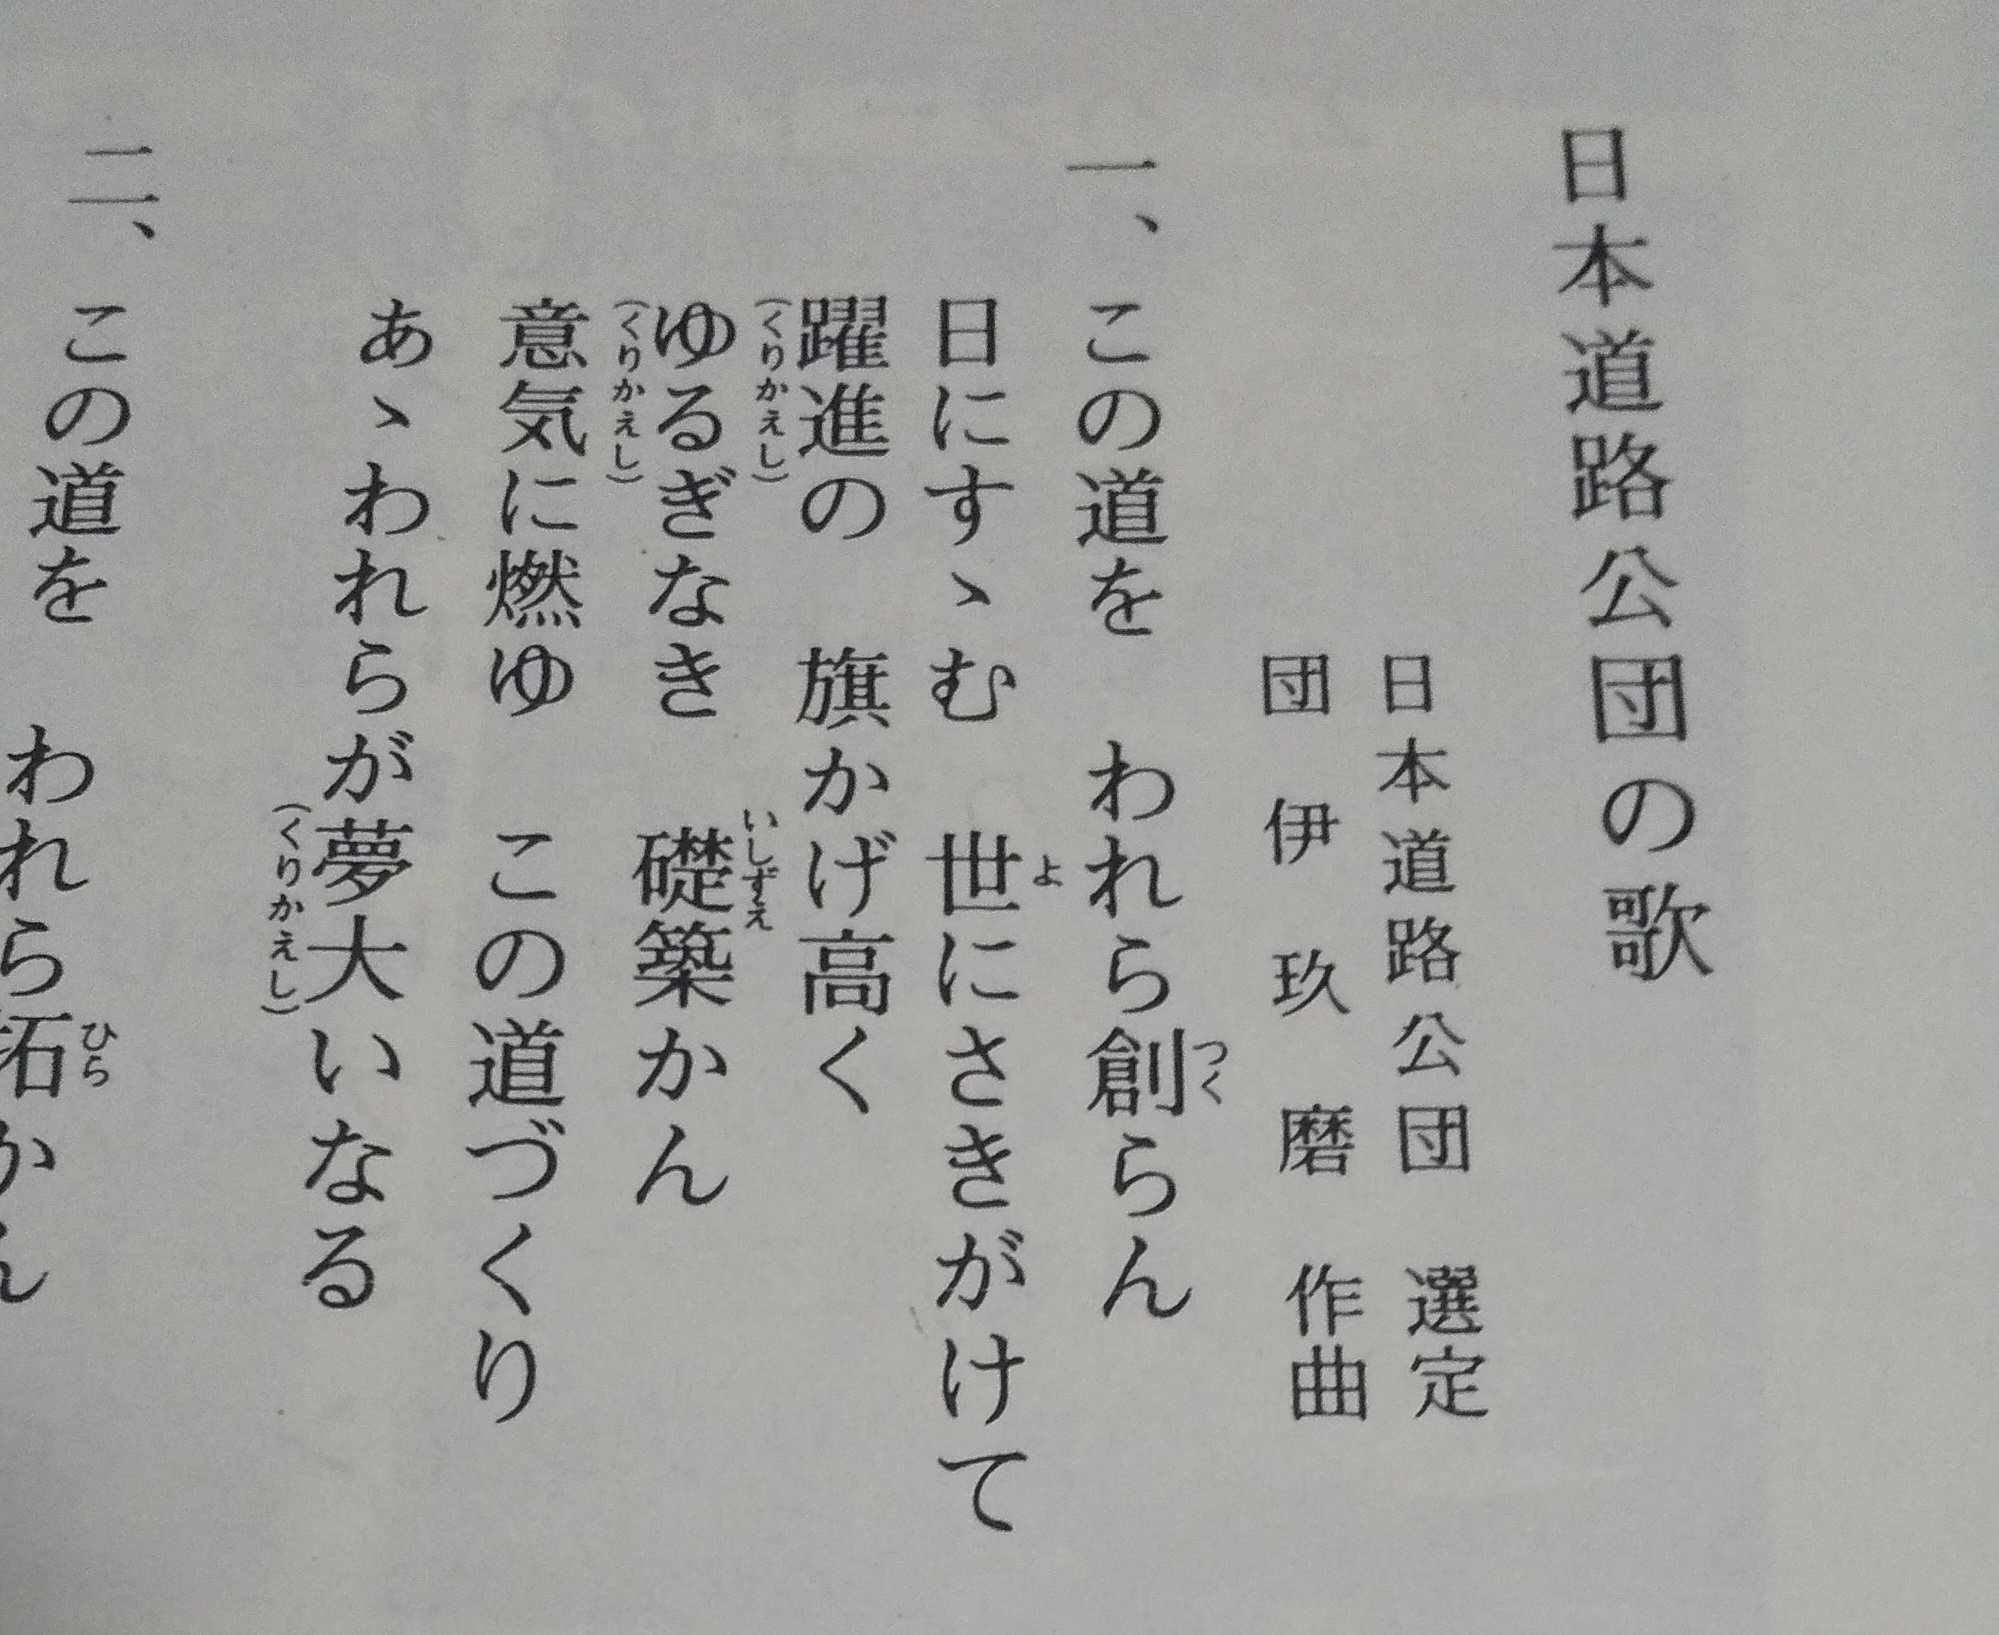 日本道路公団の歌
日本道路公団 選定
団伊玖磨 作曲
一、この道を われら創らん
つく
日にすゝむ 世にさきがけて
よ
躍進の 旗かげ高く
(くりかえし)
ゆるぎなき 礎築かん
いしずえ
(くりかえし)
意気に燃ゆ この道づくり
あゝわれらが夢大いなる
(くりかえし)
二、この道を われら拓かん
ひら